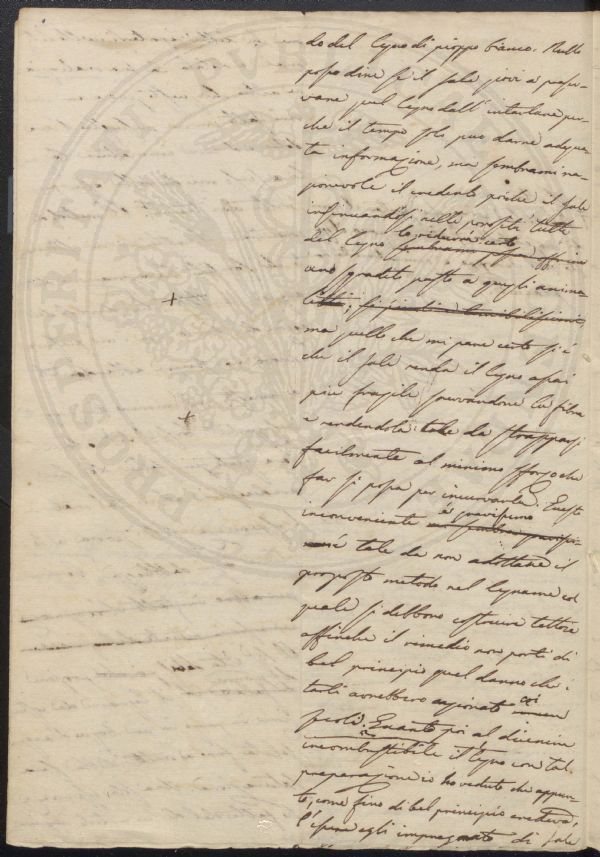 do del legno di pioppo bianco. Nulla
posso dire se il sale giovi a preser-
vare quel legno dall'intarlare per-
chè il tempo solo può darne adegua-
ta informazione, ma sembrami ra-
gionevole il crederlo poichè il sale
insinuandosi nelle porosità tutte
lo ridurrà certo
del legno
ano gradito pasto a quegli anima-
letti,
ma quello che mi pare certo si è
che il sale renda il legno assai
più fragile snervandone la fibra
e rendendola tale da strapparsi
facilmente al minimo sforzo che
far si possa per incurvarla. Questo
è gravissimo
inconveniente
è tale da non adottare il
proposto metodo nel legname col
quale si debbono costruire tettoie
affinchè il rimedio non porti di
bel principio quel danno che i
tarli avrebbero cagionato coi
secoli. Quanto poi al divenire
incombustibile il legno con tal
preparazione io ho veduto che appun-
to, come fino di bel principio credeva,
l'essere egli impregnato di sale